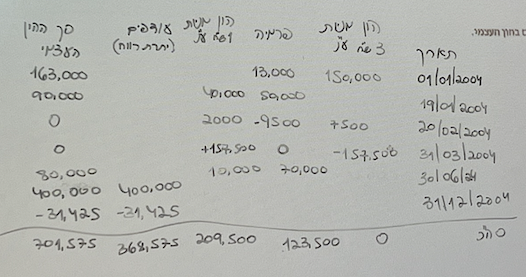 ם בהון העצמי.
תאריך הון מניות 3 ש"ח ע"נ פרמיה הון מניות 1 ש"ח ע"נ עודפים (יתרת רווח) סך ההון העצמי
01/01/2004 150,000 13,000 163,000
19/01/2004 50,000 40,000 90,000
20/02/2004 +7500 -9500 2000 0
31/03/2004 -157,500 0 +157,500 0
30/06/24 70,000 10,000 80,000
400,000 400,000
31/12/2004 -31,425 -31,425
סה"כ 0 123,500 209,500 368,575 701,575